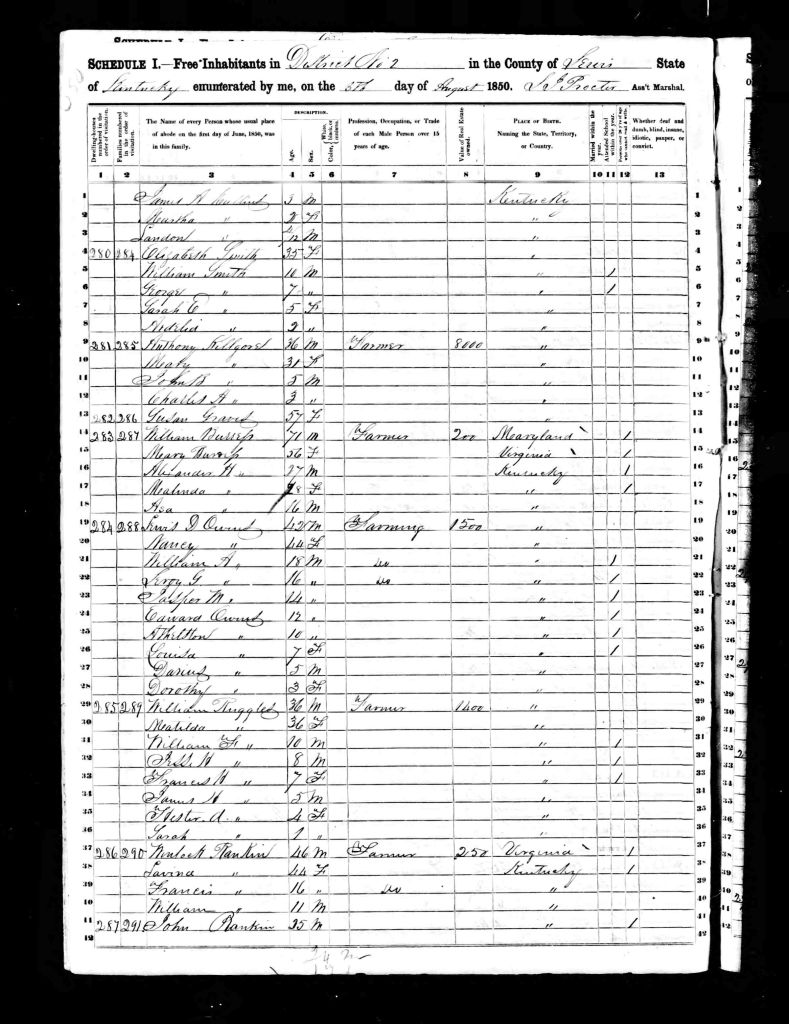 SCHEDULE I.—Free Inhabitants in District No 2 in the County of Lewis State
of Kentucky enumerated by me, on the 5th day of August 1850. Procter Ass't Marshal.
Dwelling-houses numbered in the order of visitation.
Families numbered in the order of visitation.
The Name of every Person whose usual place of abode on the first day of June, 1850, was in this family.
DESCRIPTION.
Age.
Sex.
White, black, or mulatto.
Color,
Profession, Occupation, or Trade of each Male Person over 15 years of age.
Value of Real Estate owned.
PLACE OF BIRTH. Naming the State, Territory, or Country.
Married within the year.
Attended School within the year.
Persons over 20 y'rs of age who cannot read & write.
Whether deaf and dumb, blind, insane, idiotic, pauper, or convict.
1 2 3 4 5 6 7 8 9 10 11 12 13
1 James H 3 M Kentucky 1
2 Martha " 2 F " 2
3 Landon " /12 M " 3
4 280 284 Elizabeth Smith 35 F " 4
5 William Smith 10 M " 1 5
6 George " 7 " " 1 6
7 Sarah E " 5 F " 7
8 " 2 " " 8
9 281 285 Anthony Killgore 36 M Farmer 8000 " 9
10 Mary " 31 F " 10
11 John B " 5 M " 11
12 Charles A " 3 " " 12
13 282 286 Susan Graves 57 F " 13
14 283 287 William Burress 71 M Farmer 200 Mearyland 1 14
15 Meary Burress 56 F Virginia 1 15
16 Alexander H " 27 M Kentucky 1 16
17 Mealinda " 28 F " 1 17
18 Asa " 16 M " 18
19 284 288 Lewis D Owens 42 M Farming 1500 " 19
20 Nancy " 44 F " 20
21 William A " 18 M do " 1 21
22 Leroy G " 16 " do " 1 22
23 Jasper M " 14 " " 1 23
24 Edward Owens 12 " " 1 24
25 " 10 " " 1 25
26 Louisa " 7 F " 1 26
27 Darius " 5 M " 27
28 Dorothy " 3 F " 28
29 285 289 William Ruggles 36 M Farmer 1400 " 29
30 Matilda " 36 F " 30
31 William F " 10 M " 1 31
32 H " 8 M " 1 32
33 Frances H " 7 F " 1 33
34 James H " 5 M " 34
35 Hester A " 4 F " 35
36 Sarah " 1 " " 36
37 286 290 Rankin 46 M Farmer 250 Virginia 1 37
38 Lavina " 44 F Kentucky 1 38
39 Francis " 16 " do " 39
40 William " 11 M " 40
41 287 291 John Rankin 35 M " 1 41
42 42